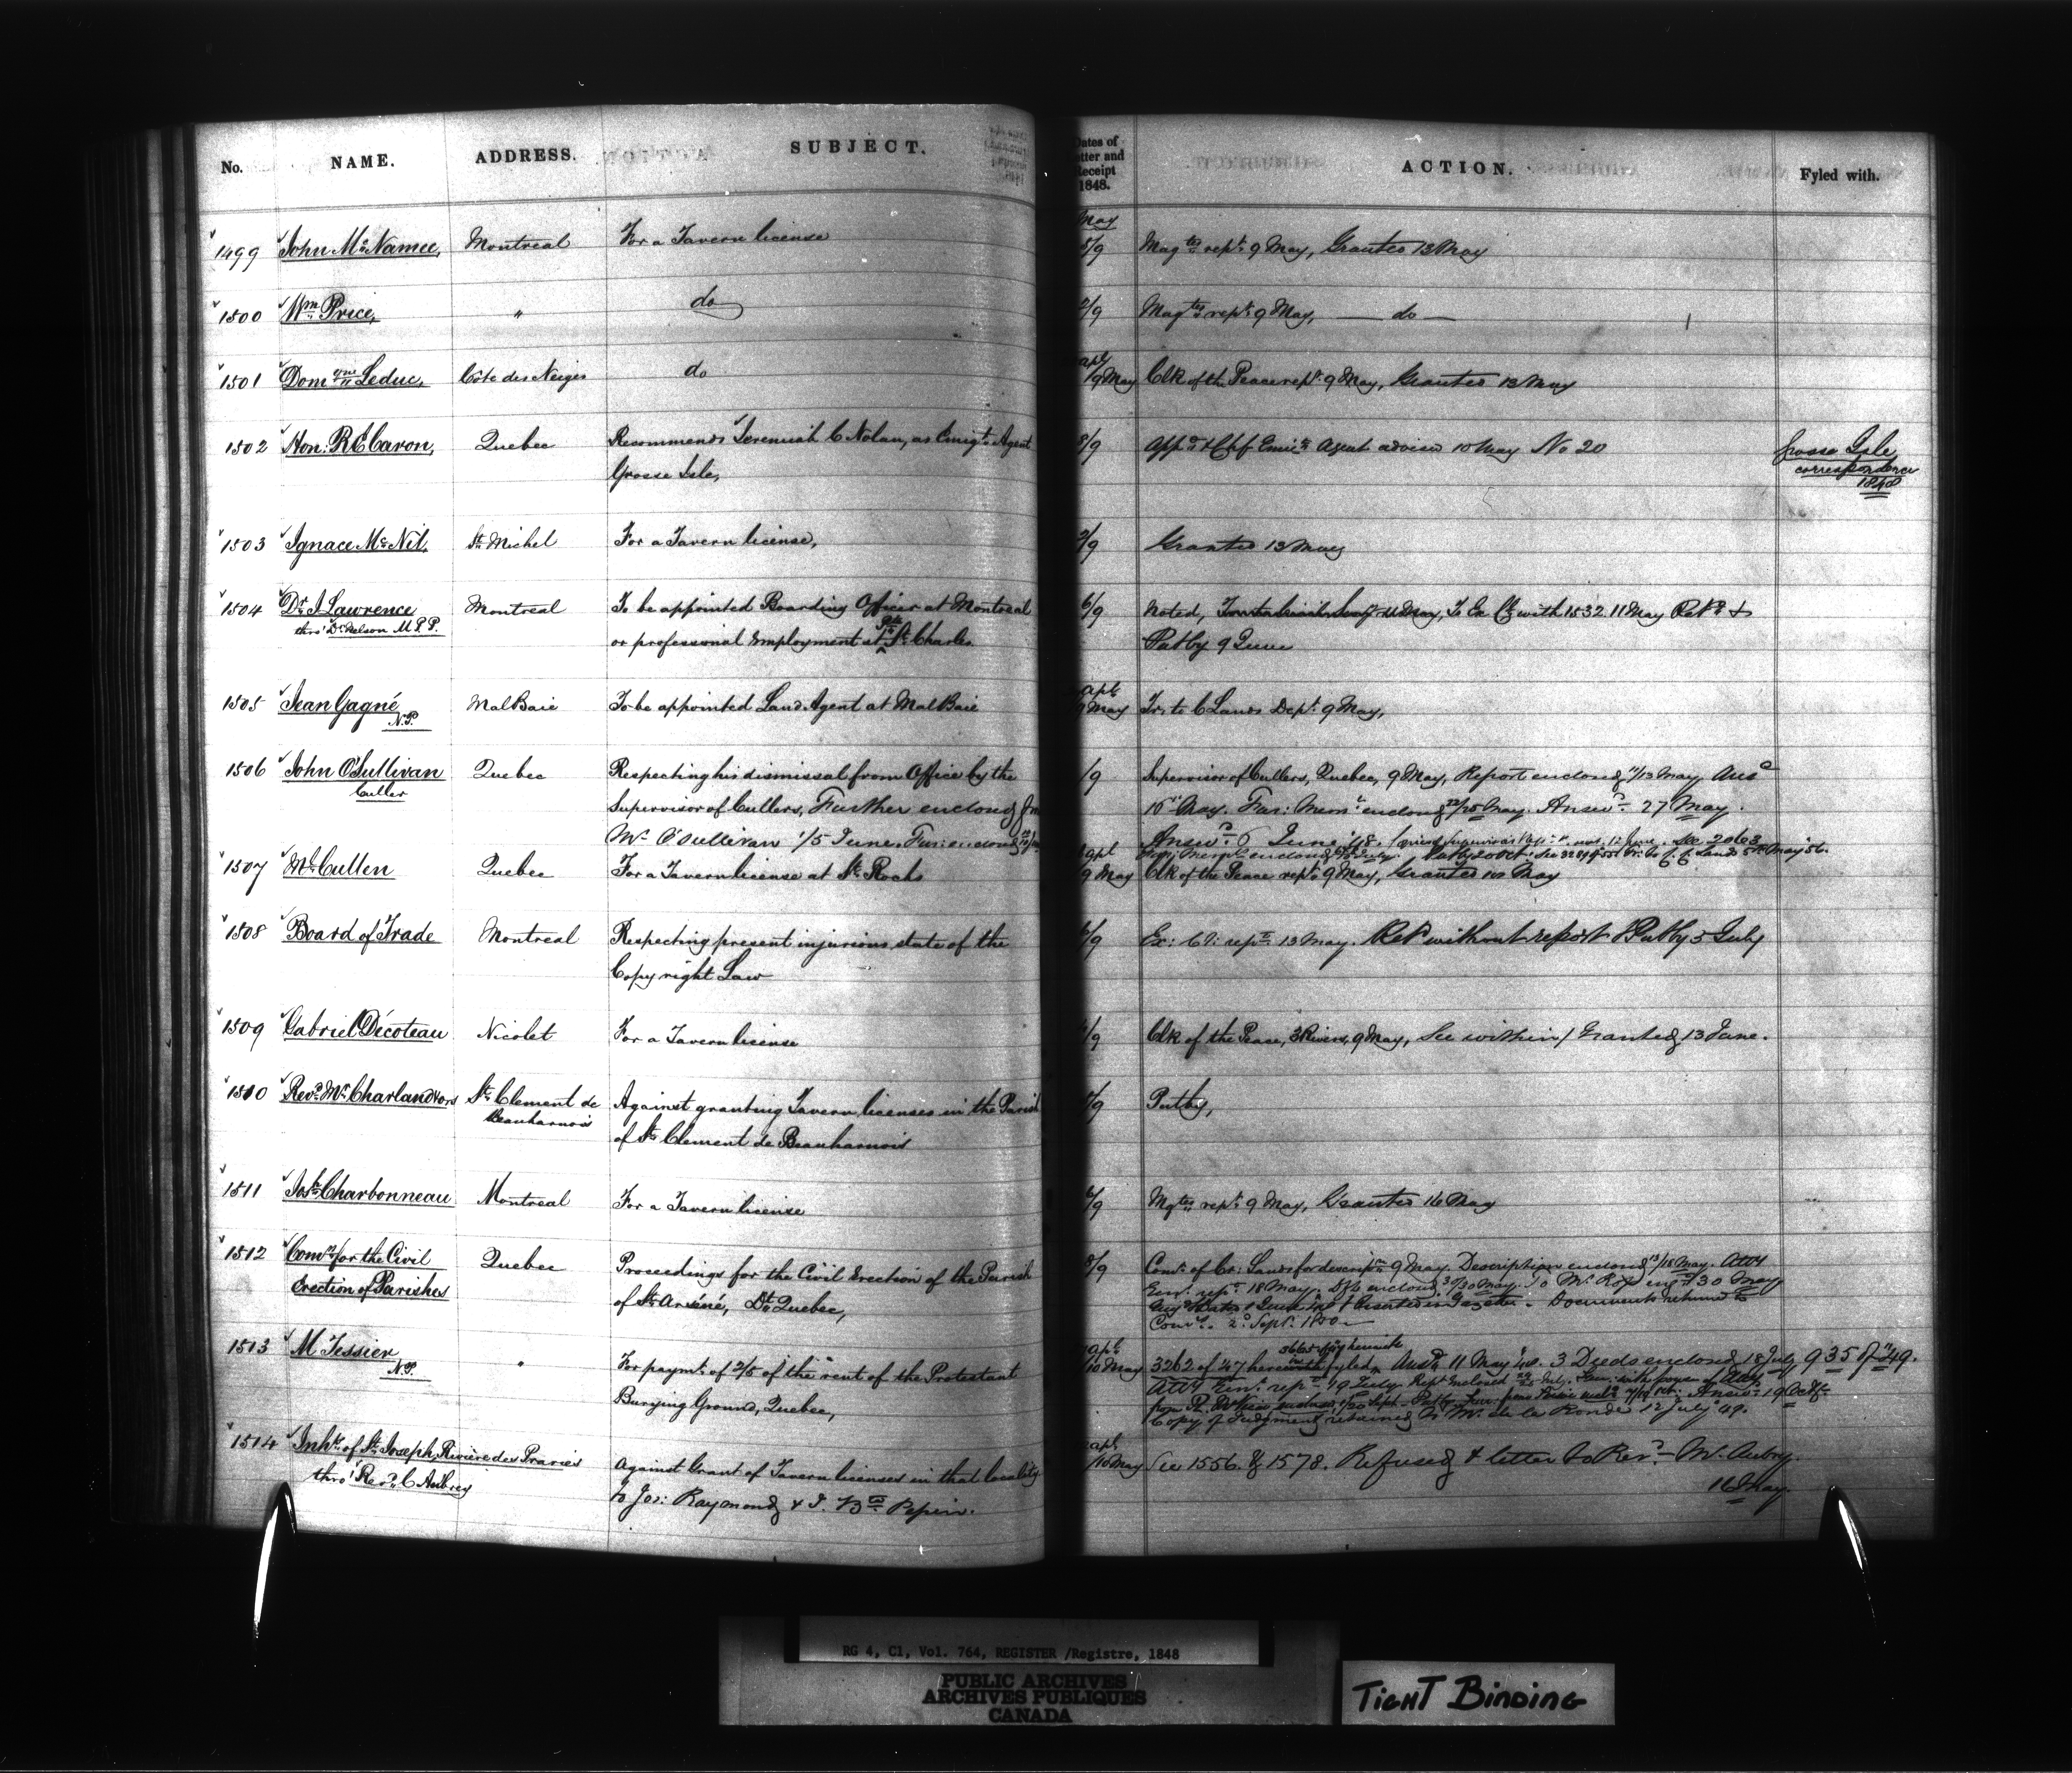 No. NAME. ADDRESS. SUBJECT. Dates of Letter and Receipt 1848. ACTION. Fyled with.
May
1499 John McNamee, Montreal For a Tavern license 5/9 Magtes rept 9 May, Granted 13 May
1500 Wm Price, " do 2/9 Magtes rept 9 May, — do —
1501 Domque Leduc, Côte des Neiges do apl /9 May Clk of the Peace rept 9 May, Granted 13 May
1502 Hon: R E Caron, Quebec Recommends Jeremiah C Nolan, as Emigt Agent 8/9 Appd & Chf Emign Agent advised 10 May No 20 Grosse Isle
Grosse Isle, correspondence
1848
1503 Ignace McNil, St Michel For a Tavern license, 2/9 Granted 13 May
1504 Dr J Lawrence Montreal To be appointed Boarding Officer at Montreal 6/9 Noted, 11 May, To Ex Cl with 1532. 11 May Retd &
thro' Dr Nelson M.P.P. or professional Employment at Pt St Charles Put by 9 June
1505 Jean Gagné MalBaie To be appointed Land Agent at MalBaie apl 9 May Tr: to C Lands Dept 9 May,
N.P.
1506 John O'Sullivan Quebec Respecting his dismissal from Office by the /9 Supervisor of Cullers, Quebec, 9 May, Report enclosed 11/13 May. Ansd
Culler Supervisor of Cullers, Further enclosed from 15th May. Fur: Meml enclosed 22/25 May. Answd 27 May.
Mr O'Sullivan 1/5 June. Fur: enclosed Answd 6 June '48. 12 June. See 2063
1507 McCullen Quebec For a Tavern license at St Rochs apl 9 May Clk of the Peace rept 9 May, Granted 10 May
1508 Board of Trade Montreal Respecting present injurious state of the 6/9 Ex: Cl: rept 13 May. Retd without report & Put by 5 July
Copy right Law
1509 Gabriel Decoteau Nicolet For a Tavern license /9 Clk of the Peace, 3 Rivers, 9 May, See within / Granted 13 June.
1510 Revd Mr Charland & ors St Clement de Against granting Tavern licenses in the Parish /9 Put by,
Beauharnois of St Clement de Beauharnois
1511 Josh Charbonneau Montreal For a Tavern license 6/9 Mgtes rept 9 May, Granted 16 May
1512 Comrs for the Civil Quebec Proceedings for the Civil Erection of the Parish 8/9 Comr of Cr: Lands for descripn 9 May. Description enclosed 13/15 May. Atty
Erection of Parishes of St Arséné, Dt Quebec, Genl rept 18 May. Dft enclosed 30/30 May. To Mr Ross 30 May
Inserted in Gazette. Documents returned to
Comrs. 2d Septr 1800
1513 M Tessier " For paymt of 2/5 of the rent of the Protestant apl /10 May 3262 of 47 herewith fyled, Ansd 11 May '48. 3 Deeds enclosed 18 July, 935 of '49.
N.P. Burying Ground, Quebec, Atty Genl rept 19 July. Rept enclosed
Answd 19 Octr
Copy of Judgment retained by Mr de la Ronde 12 July '49.
1514 Inhts of St Joseph, Riviere des Praries Against Grant of Tavern licenses in that locality apl /10 May See 1556 & 1578. Refused & letter to Revd Mr Aubry.
thro' Revd C Aubrey to Jos: Raymond & J. Bte Pepin. 16 May.
RG 4, C1, Vol. 764, REGISTER /Registre, 1848
PUBLIC ARCHIVES
ARCHIVES PUBLIQUES
CANADA
TIGHT BINDING